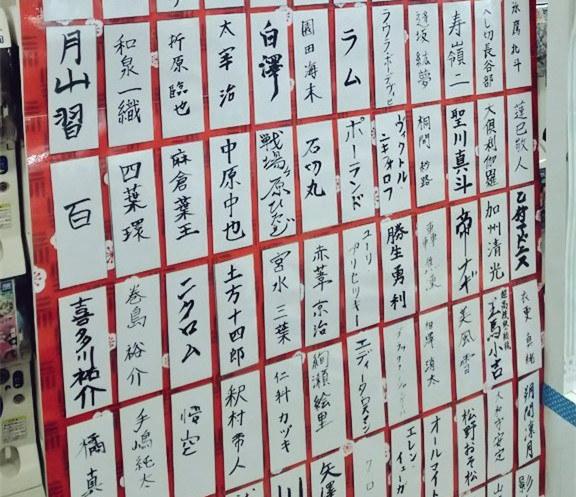 鷹北斗
蓮巳敬人
乙狩アドニス
衣更真緒
朔間凛月
影
へし切長谷部
大倶利伽羅
加州清光
王馬小吉
大和守安定
山
寿嶺二
聖川真斗
帝ナギ
美風
松野おそ松
桐間紗路
轟焦凍
オールマイト
ラウラ・ボーデヴィッヒ
ヴィクトル・
ニキフォロフ
勝生勇利
エレン・
イェーガ
ラム
ポーランド
ユーリ
プリセツキー
園田海未
石切丸
赤葦京治
絢瀬絵里
矢澤
白澤
戦場ヶ原ひたぎ
宮水三葉
仁科カヅキ
川
太宰治
中原中也
土方十四郎
釈村帝人
折原臨也
麻倉葉王
ニクロム
悟空
和泉一織
四葉環
巻島裕介
手嶋純太
月山習
百
喜多川祐介
橘真